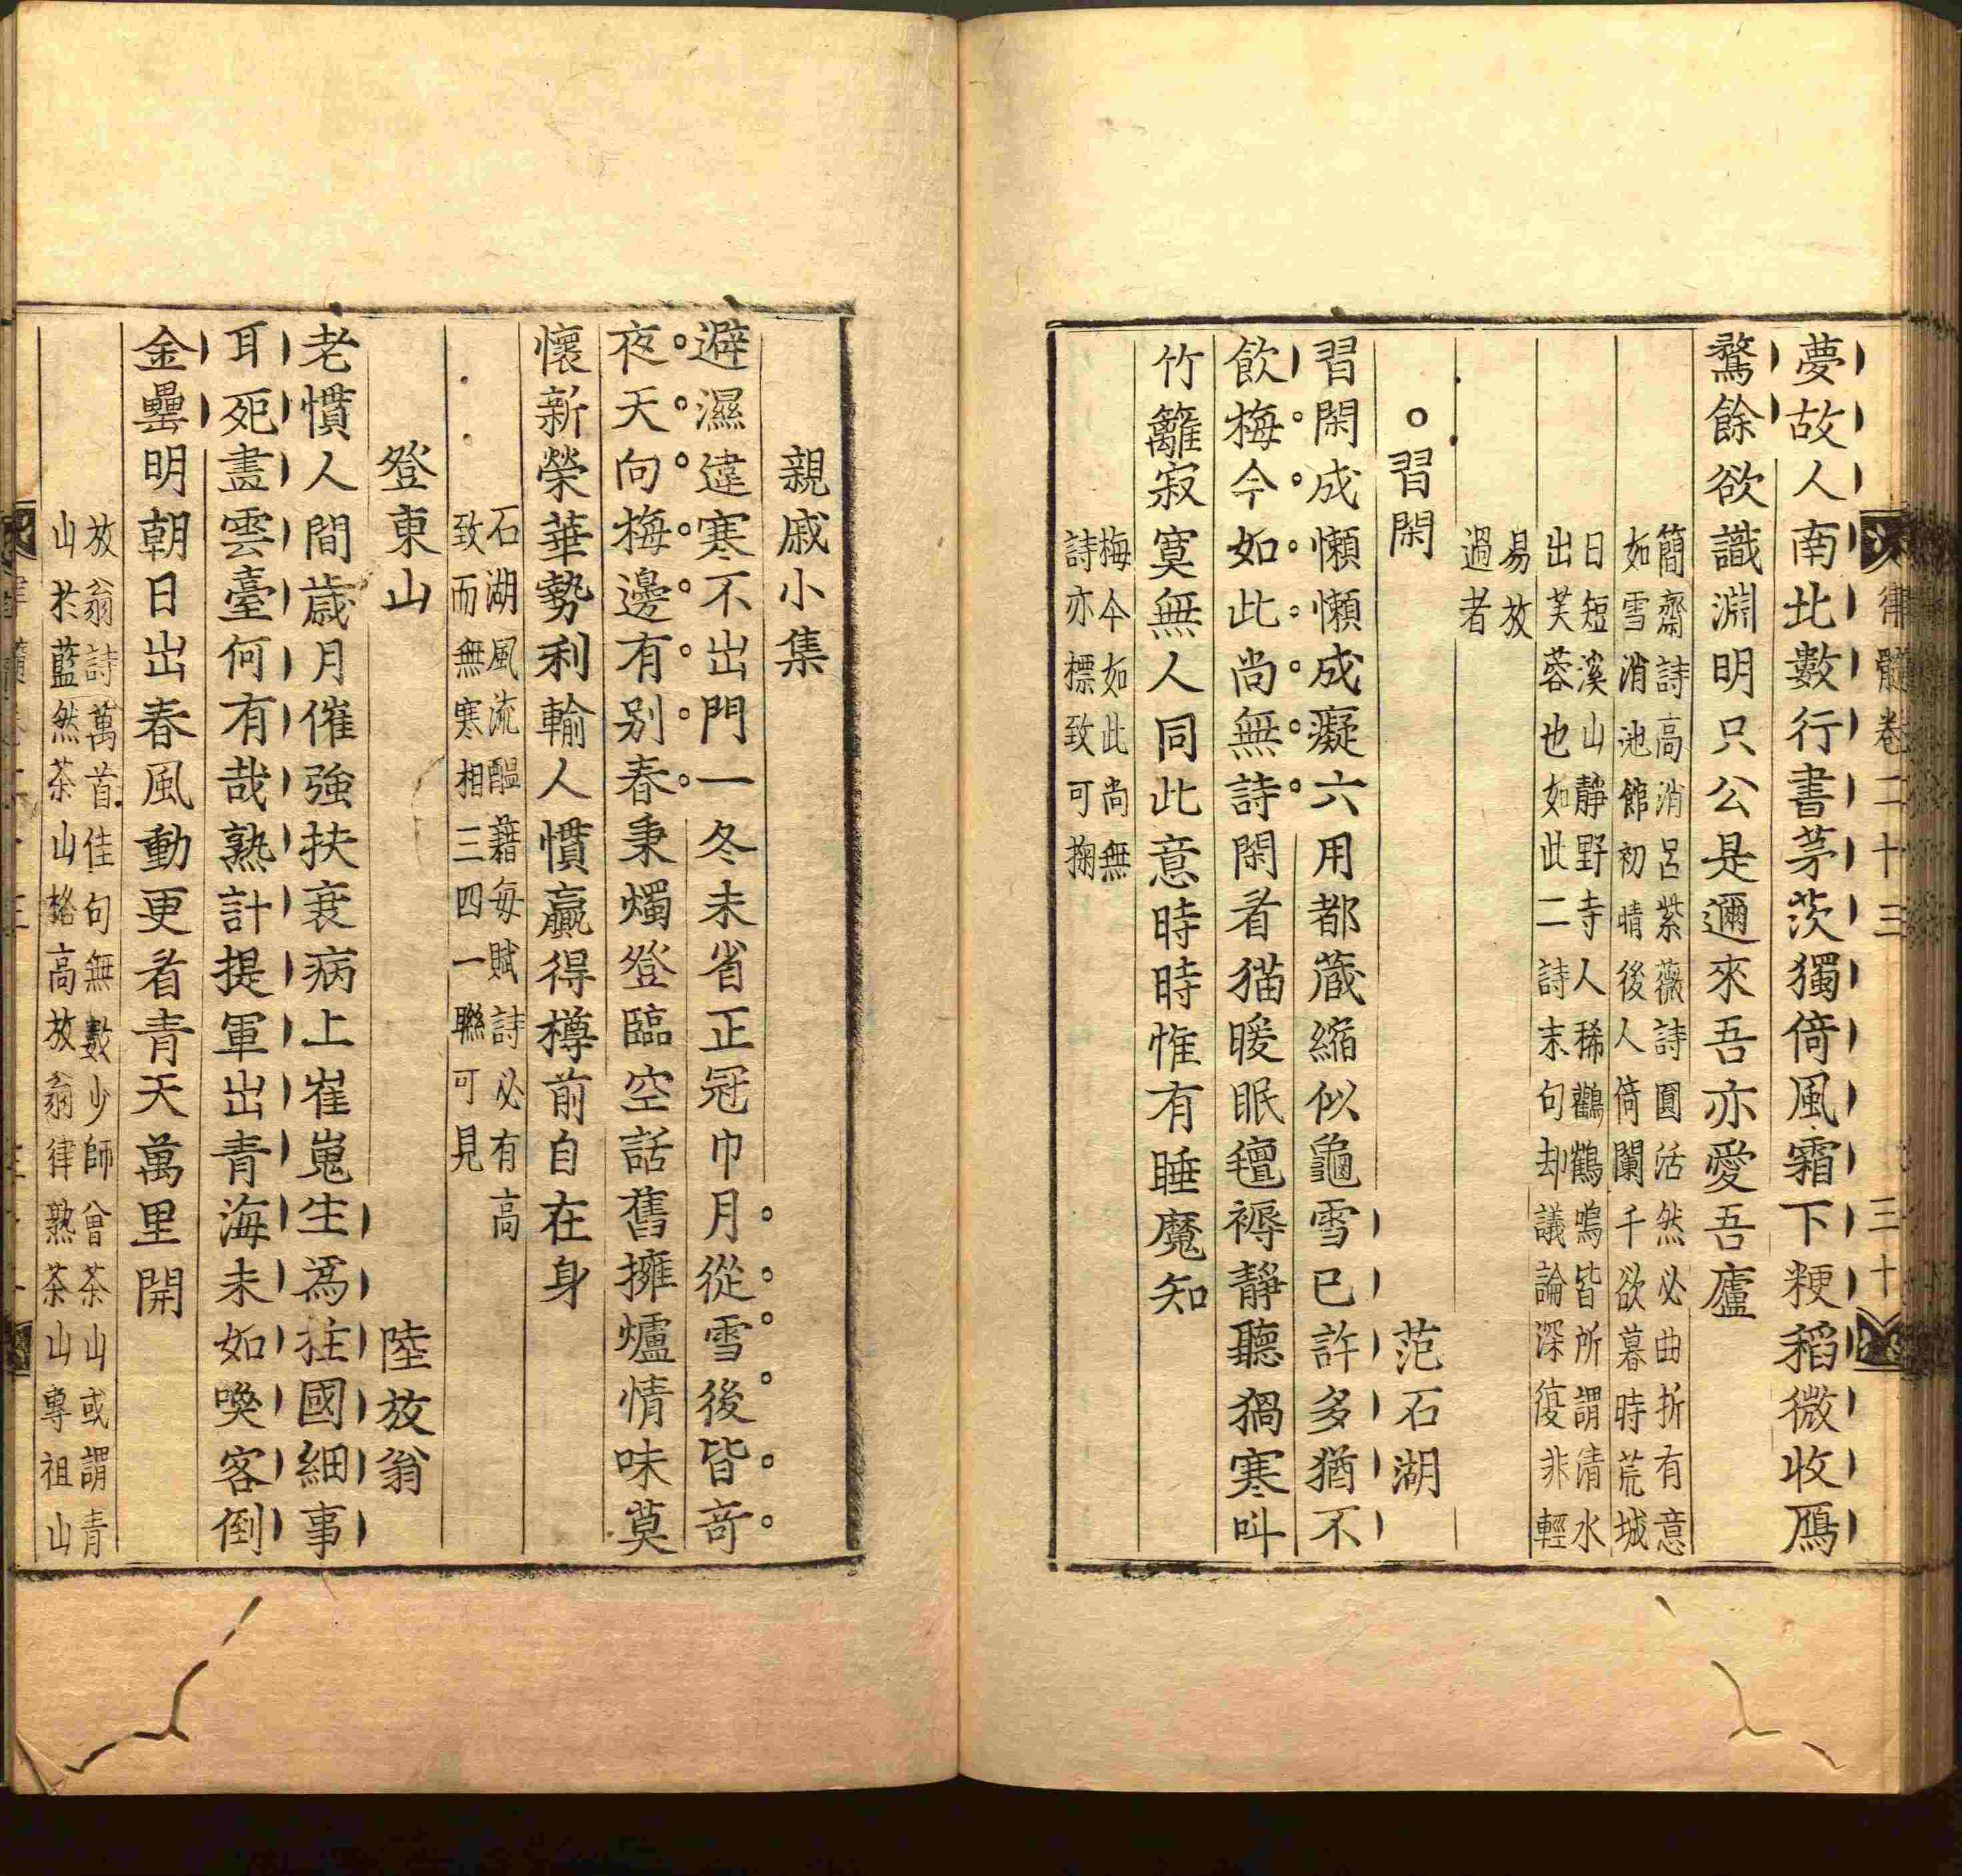 律髓卷二十三　三十
夢故人南北數行書茅茨獨倚風霜下粳稻微收鴈
驚餘欲識淵明只公是邇來吾亦愛吾廬
簡齋詩高消呂紫薇詩圓活然必曲折有意
如雪消池館初晴後人倚闌干欲暮時荒城
日短溪山靜野寺人稀鸛鶴鳴皆所謂清水
出芙蓉也如此二詩末句却議論深復非輕
易放
過者
。習閑　范石湖
習閑成懶懶成癡六用都蔵縮似龜雪已許多猶不
飲梅今如此尚無詩閑看猫暖眠氊褥靜聽猧寒叫
竹籬寂寞無人同此意時時惟有睡魔知
梅今如此尚無
詩亦標致可掬
親戚小集
避濕違寒不出門一冬未省正冠巾月從雪後皆竒
夜天向梅邊有别春秉燭登臨空話舊擁爐情味莫
懷新榮華勢利輸人慣贏得樽前自在身
石湖風流醖藉每賦詩必有高
致而無寒相三四一聯可見
登東山　陸放翁
老慣人間歳月催強扶衰病上崔嵬生爲拄國細事
耳死盡雲臺何有哉熟計提軍出青海未如喚客倒
金罍明朝日出春風動更看青天萬里開
放翁詩萬首佳句無數少師曾茶山或謂青
山於藍然茶山格高放翁律熟茶山專祖山